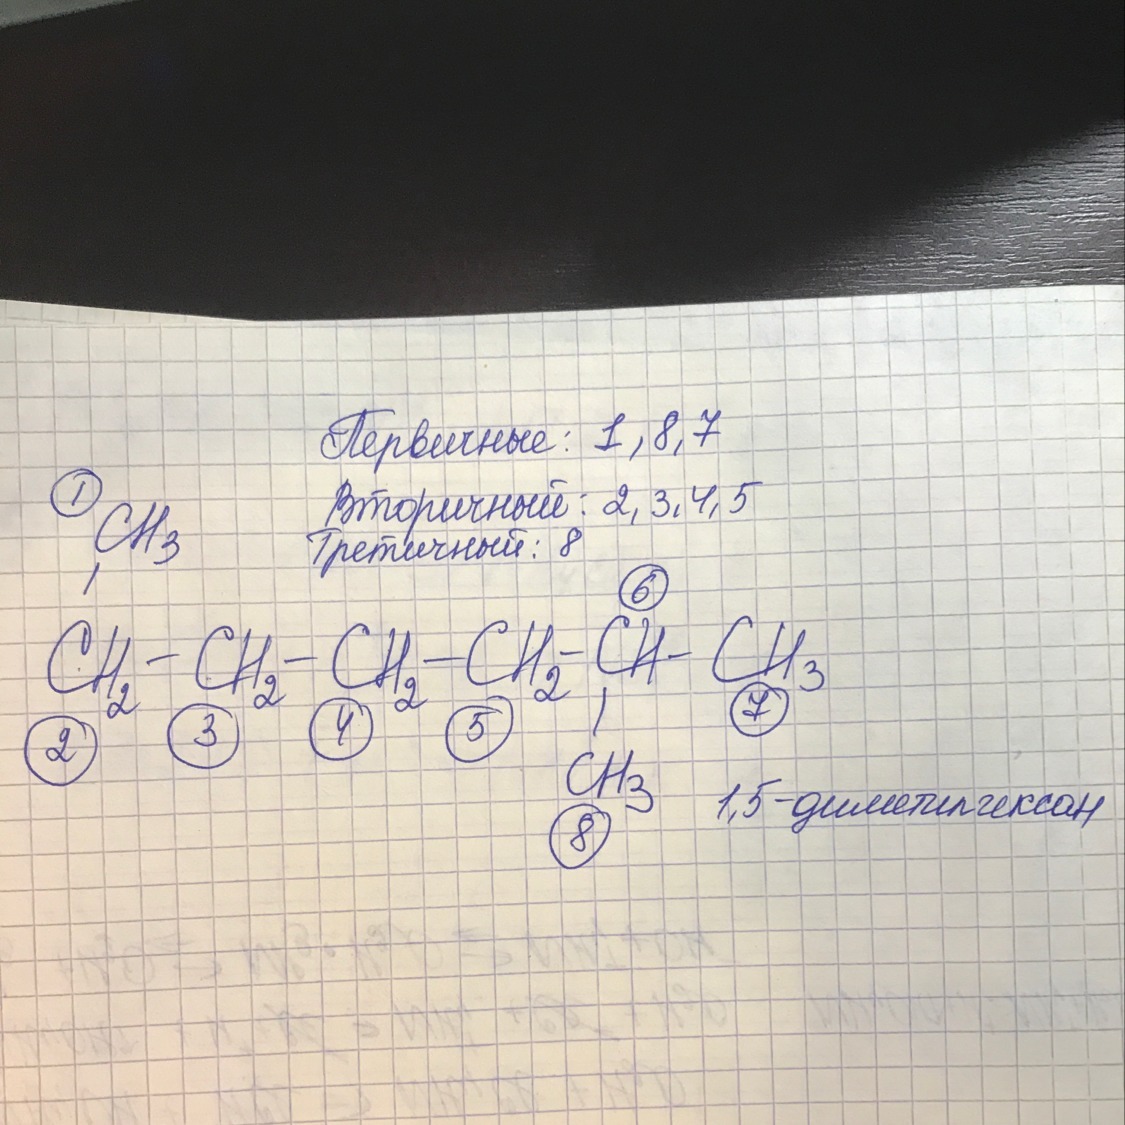 Первичные: 1,8,7
①
Вторичный: 2,3,4,5
CH3
Третичный: 8
⑥
CH2 - CH2 - CH2 - CH2 - CH - CH3
② ③ ④ ⑤ ⑦
CH3
1,5-диметилгексан
⑧